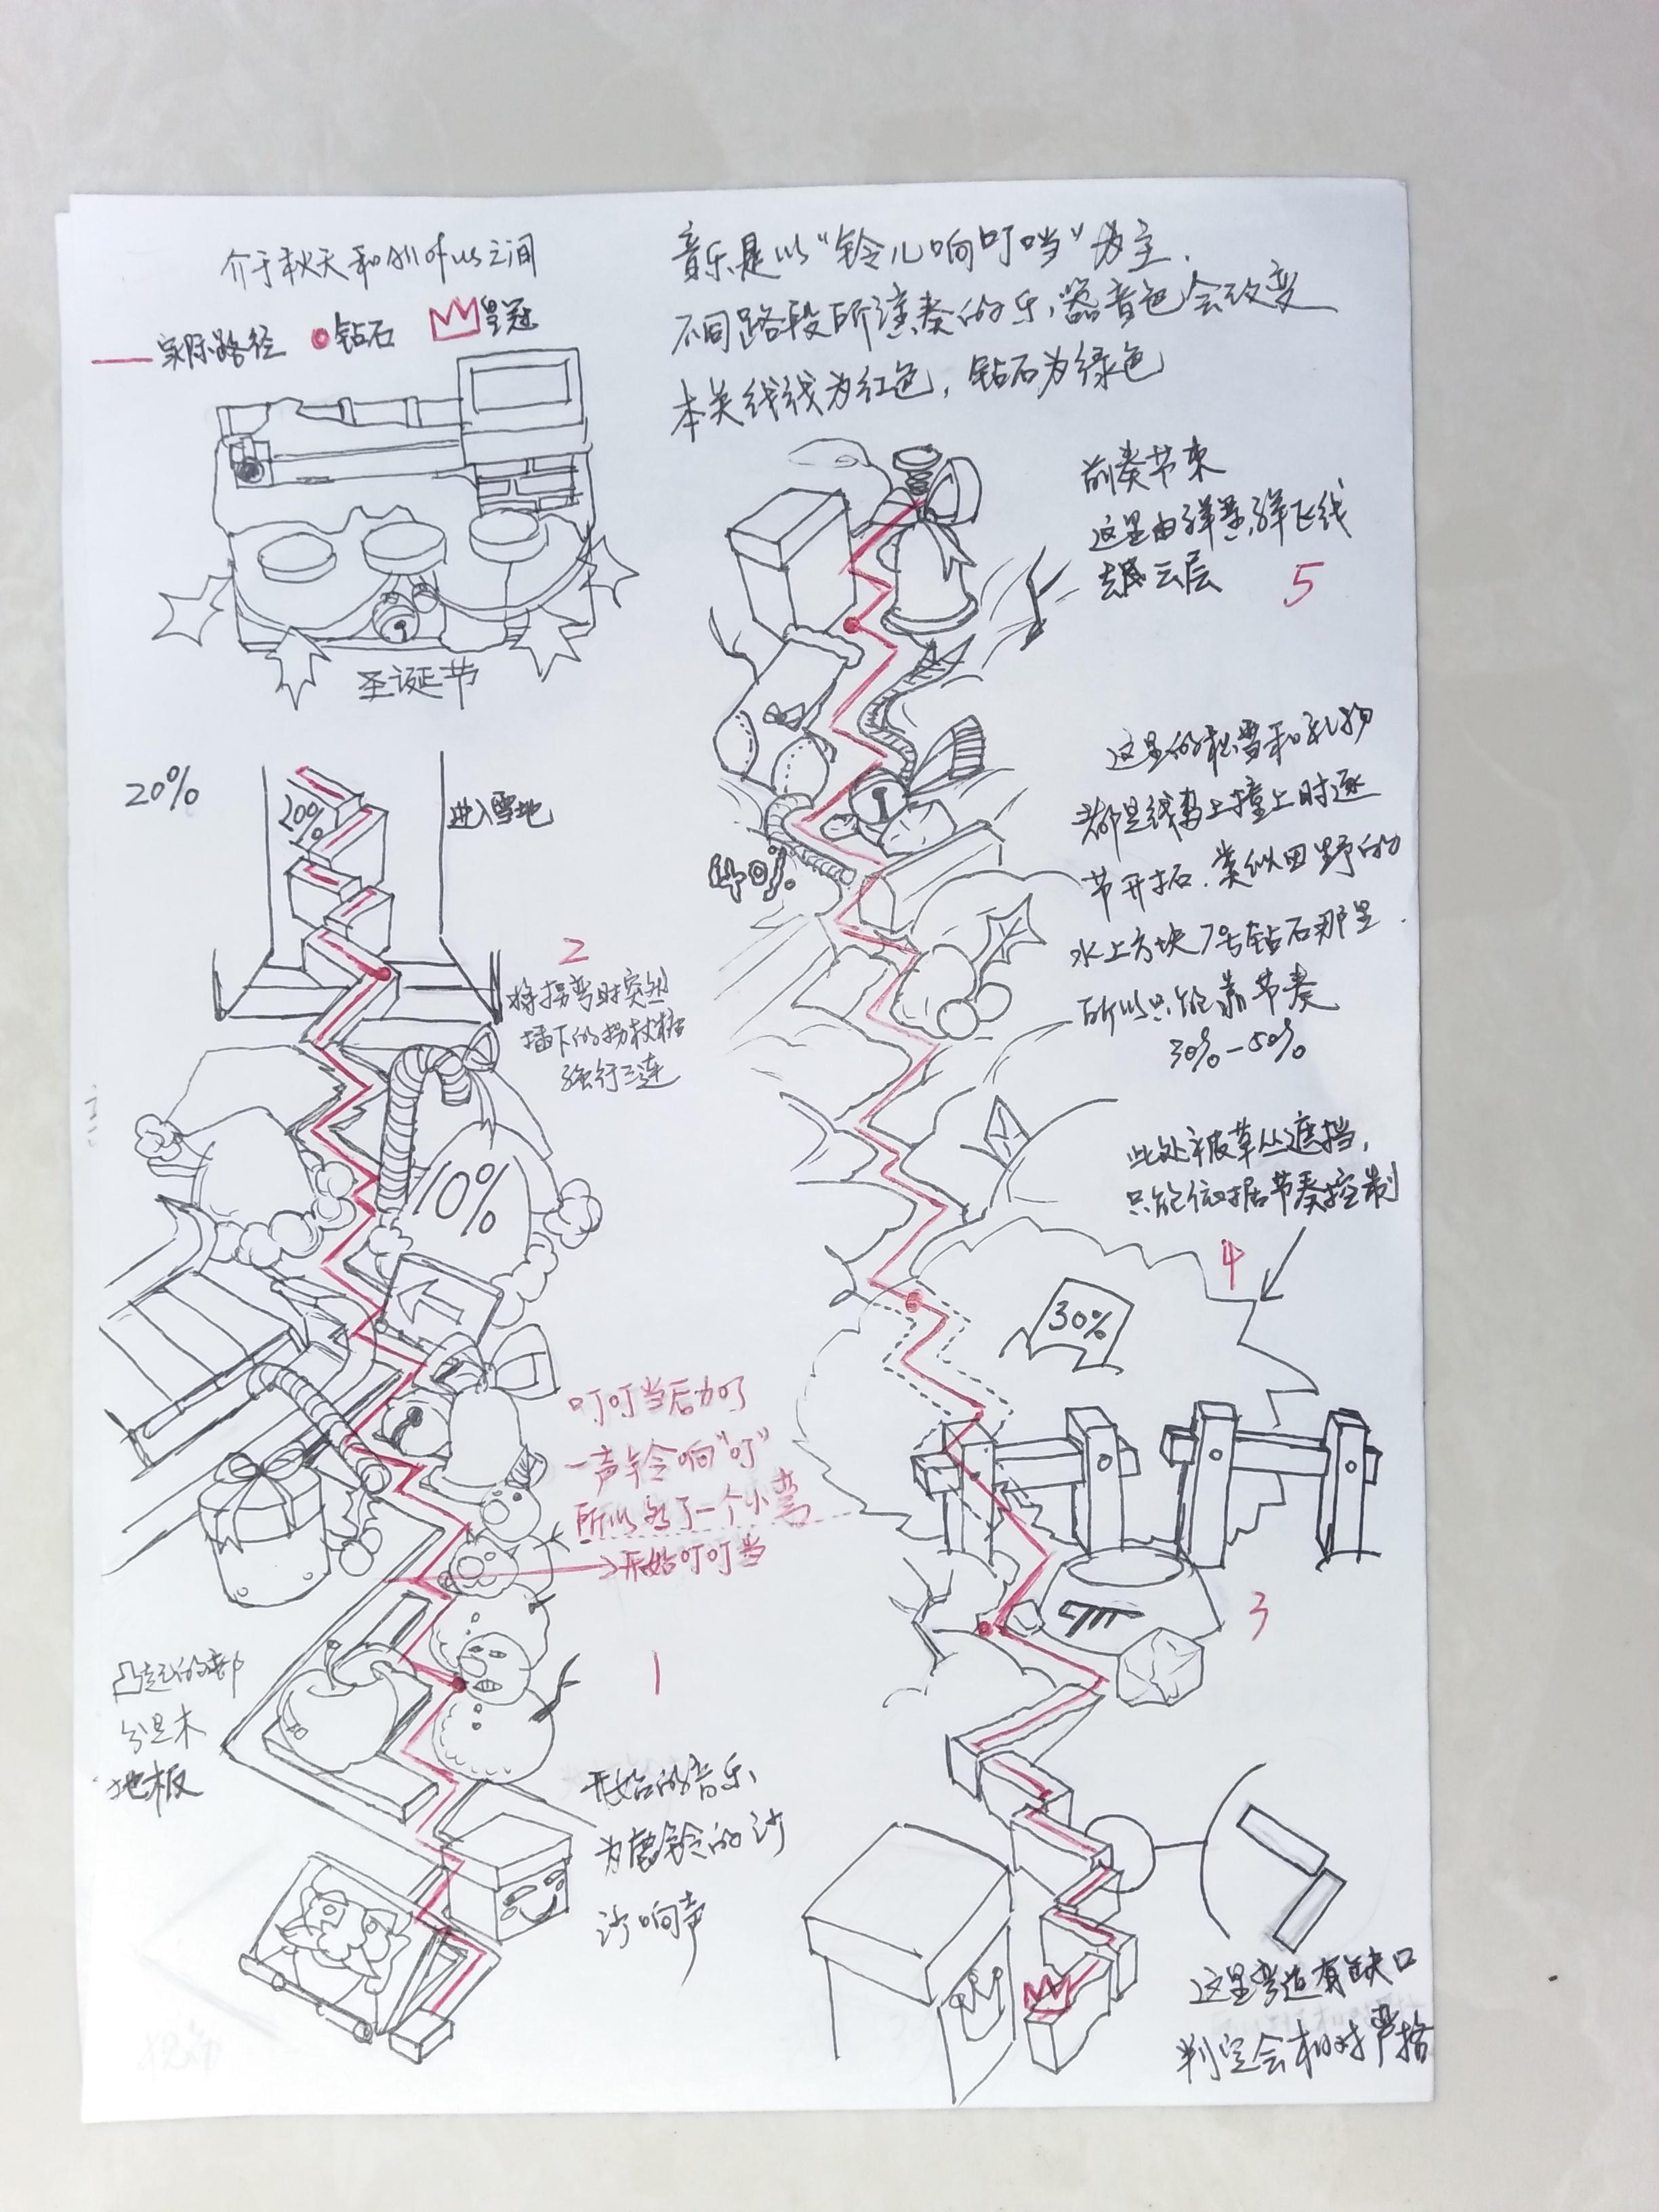 介于秋天和All of us之间
实际路径 钻石 皇冠
圣诞节
音乐是以“铃儿响叮当”为主.
不同路段所演奏的乐器音色会改变
本关线线为红色，钻石为绿色
20%
20%
进入雪地
2
将拐弯时突然
插下的拐杖糖
强行三连
10%
叮叮当后加了
一声铃响“叮”
所以多了一个小弯
开始叮叮当
1
凸起的部
分是木
地板
开始的音乐
为鹿铃的沙
沙响声
前奏节束
这里由弹簧弹飞线
去感云层
5
这里的积雪和礼物
都是线马上撞上时逐
节开拓.类似田野的
水上方块7号钻石那里.
所以只能靠节奏
30%-50%
40%
此处被草丛遮挡，
只能依据节奏控制
4
30%
3
这里弯道有缺口
判定会相对严格